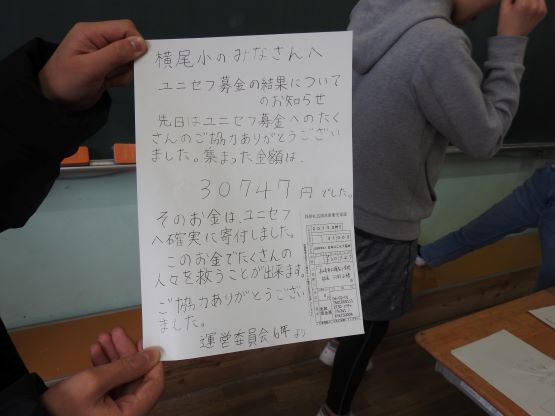 横尾小のみなさんへ
ユニセフ募金の結果について
のお知らせ
先日はユニセフ募金へのたく
さんのご協力ありがとうござい
ました。集まった金額は、
30747円でした。
そのお金は、ユニセフ
へ確実に寄付しました。
このお金でたくさんの
人々を救うことが出来ます。
ご協力ありがとうござい
ました。
運営委員会6年より